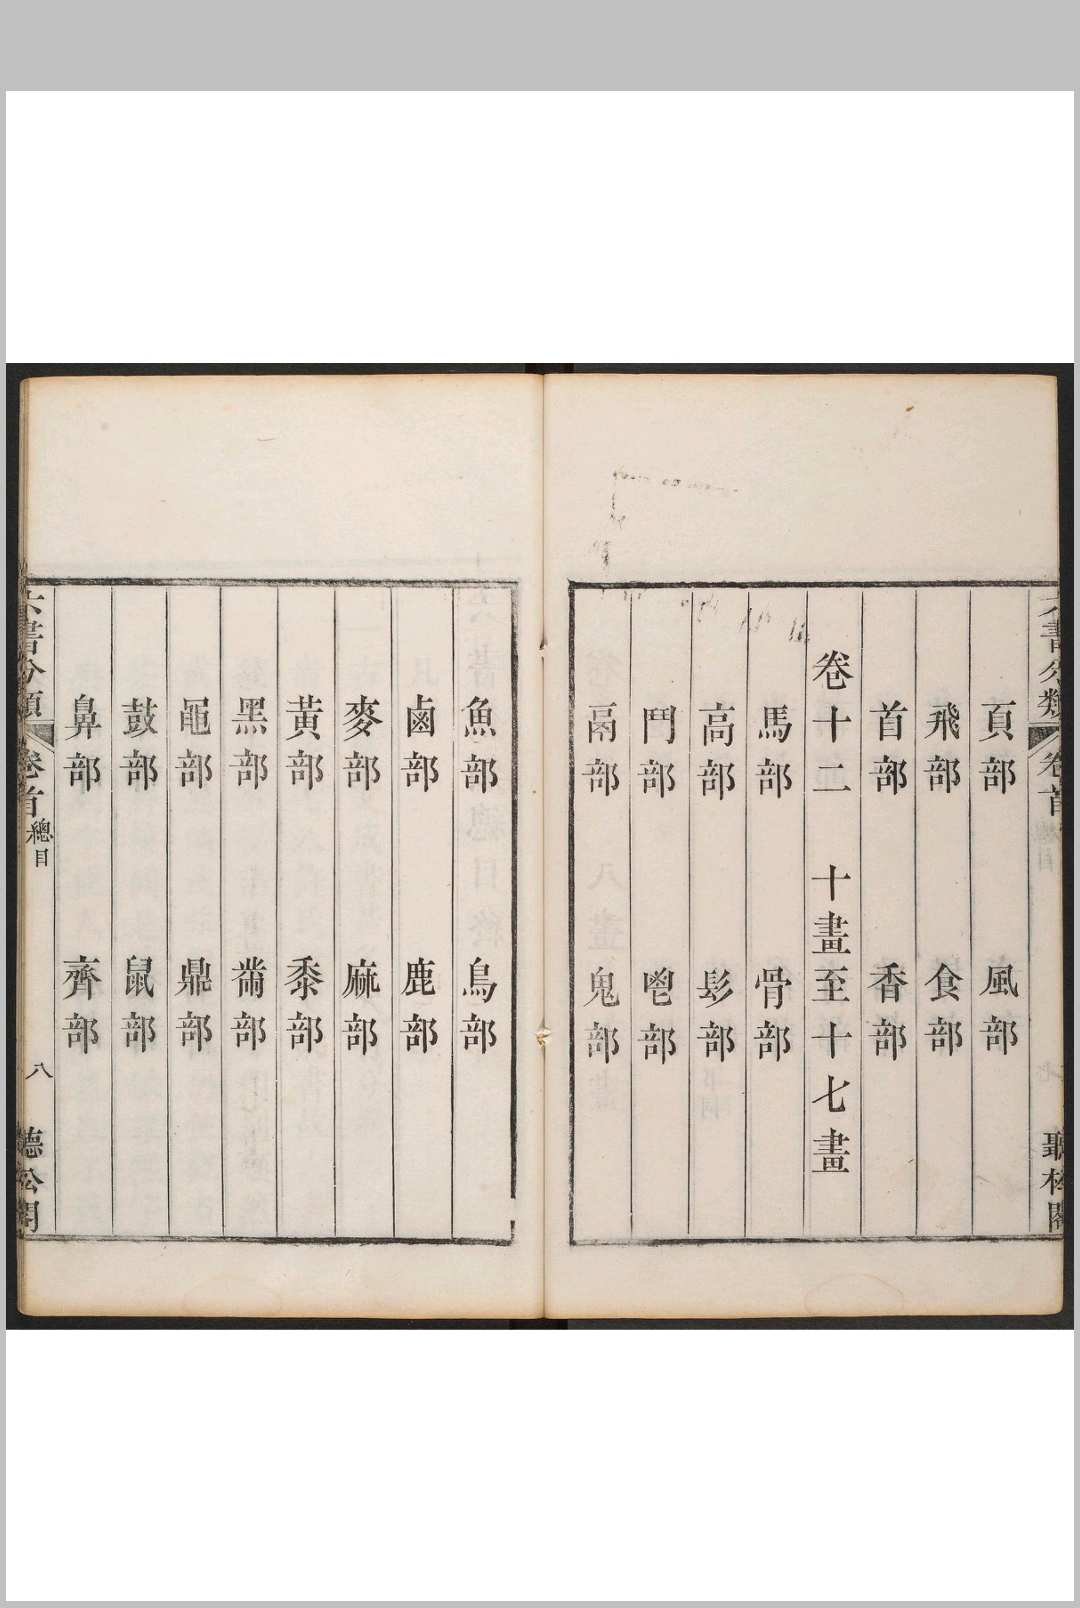 六書分類 卷首
聽松閣
頁部 風部
飛部 食部
首部 香部
卷十二 十畫至十七畫
馬部 骨部
高部 髟部
鬥部 鬯部
鬲部 鬼部
魚部 鳥部
鹵部 鹿部
麥部 麻部
黃部 黍部
黑部 黹部
黽部 鼎部
鼓部 鼠部
鼻部 齊部
六書分類 卷首 總目 八 聽松閣